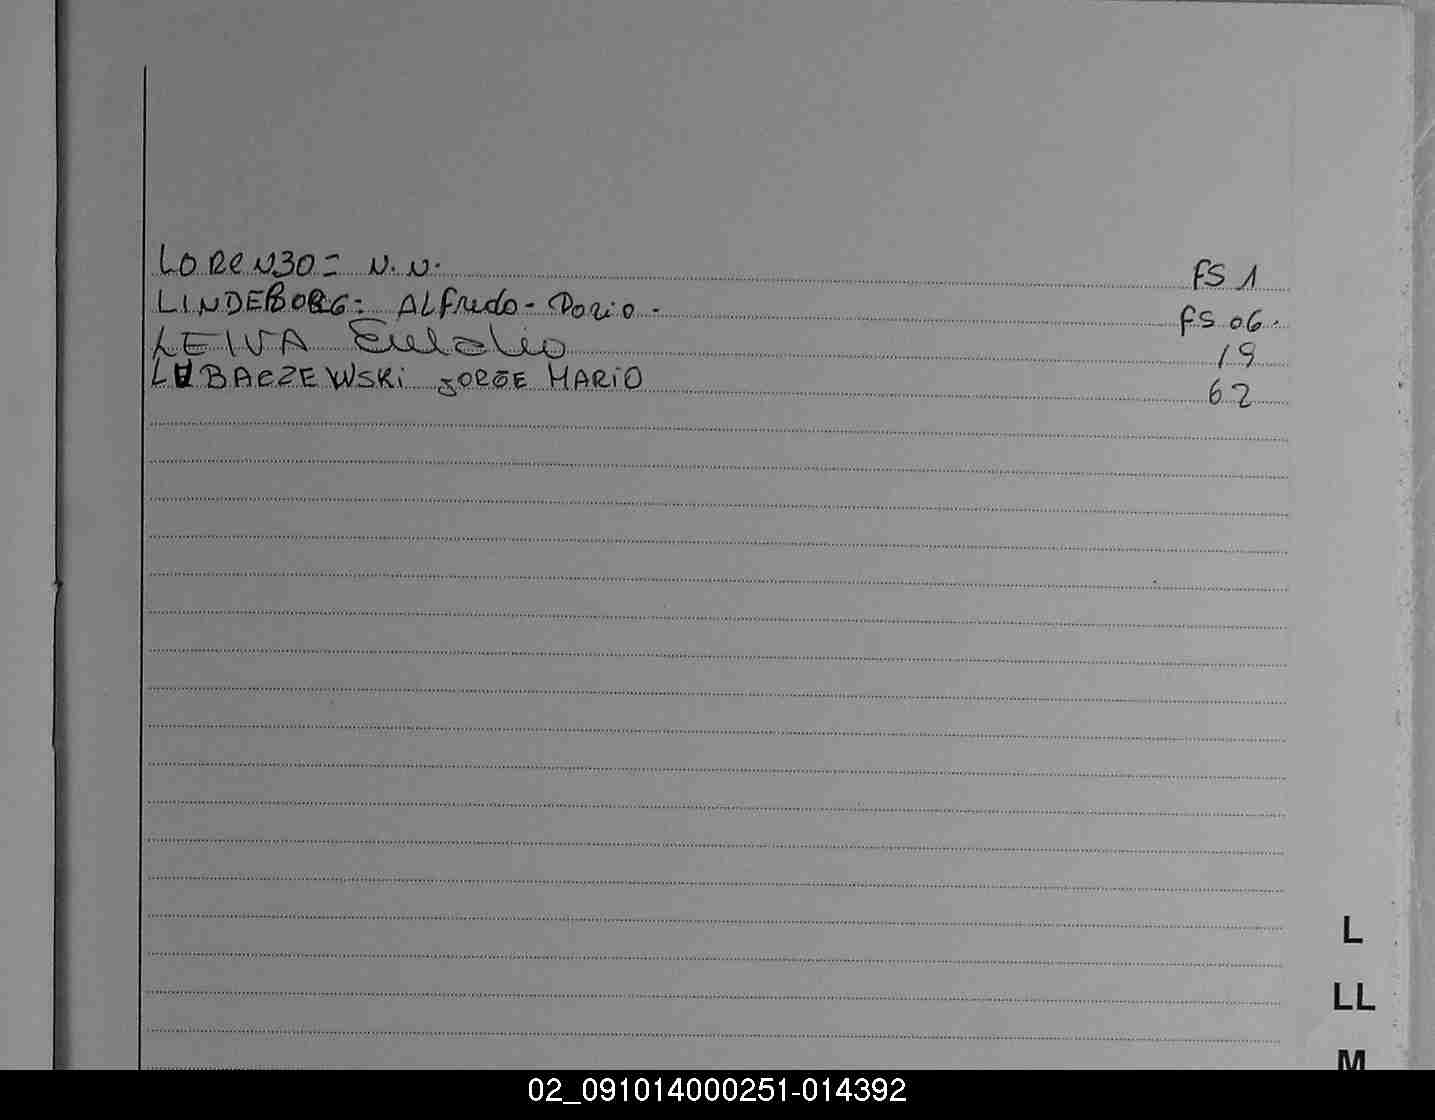 LORENZO = N.N. FS 1
LINDEBORG: ALfredo - Dario - FS 06.
LEIVA Eulalio 19
LUBACZEWSKi JORGE MARIO 62
L
LL
M
02_091014000251-014392